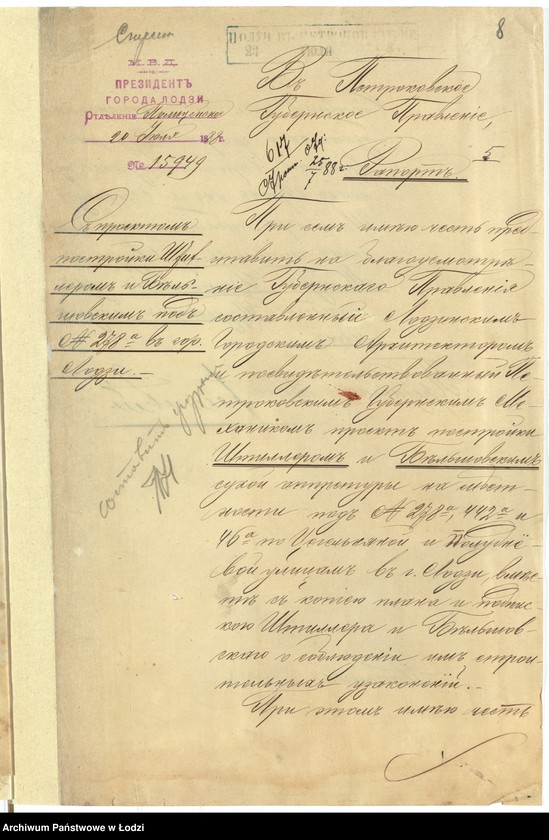 8
М.В.Д.
ПРЕЗИДЕНТЪ
ГОРОДА ЛОДЗИ
Отдѣленіе
20 Іюля 1888 г.
№ 15949
Въ Петроковское
Губернское Правленіе,
617
25/7 88 г.
5
Рапортъ.
Съ проектомъ
постройки Штил-
леромъ и Бѣль-
шовскимъ подъ
№ 278а въ гор.
Лодзи.—
составить
При семъ имѣю честь пред-
ставить на благоусмотрѣ-
ніе Губернскаго Правленія
составленный Лодзинскимъ
Городскимъ Архитекторомъ
и посвидѣтельствованный Пе-
троковскимъ Губернскимъ Ме-
ханикомъ проектъ постройки
Штиллеромъ и Бѣльшовскимъ
сухой аппретуры на мѣст-
ности подъ № 278а, 442а и
46а по Цегельняной и Полудне-
вой улицамъ въ г. Лодзи, вмѣс-
тѣ съ копіею плана и подпис-
кою Штиллера и Бѣльшов-
скаго о соблюденіи имъ строи-
тельныхъ узаконеній.—
При этомъ имѣю честь
Archiwum Państwowe w Łodzi